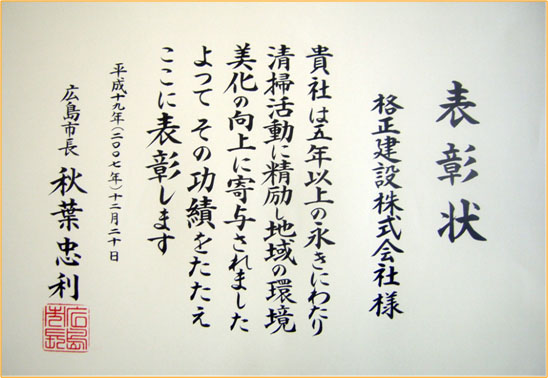 表彰状
格正建設株式会社様
貴社は五年以上の永きにわたり
清掃活動に精励し地域の環境
美化の向上に寄与されました
よって その功績をたたえ
ここに表彰します
平成十九年(二〇〇七年)十二月二十日
広島市長 秋葉忠利
広島市長